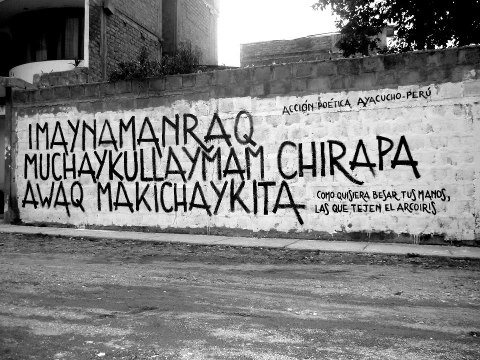 ACCIÓN POÉTICA AYACUCHO-PERÚ
IMAYNAMANRAQ
MUCHAYKULLAYMAM CHIRAPA
AWAQ MAKICHAYKITA
COMO QUISIERA BESAR TUS MANOS,
LAS QUE TEJEN EL ARCOIRIS